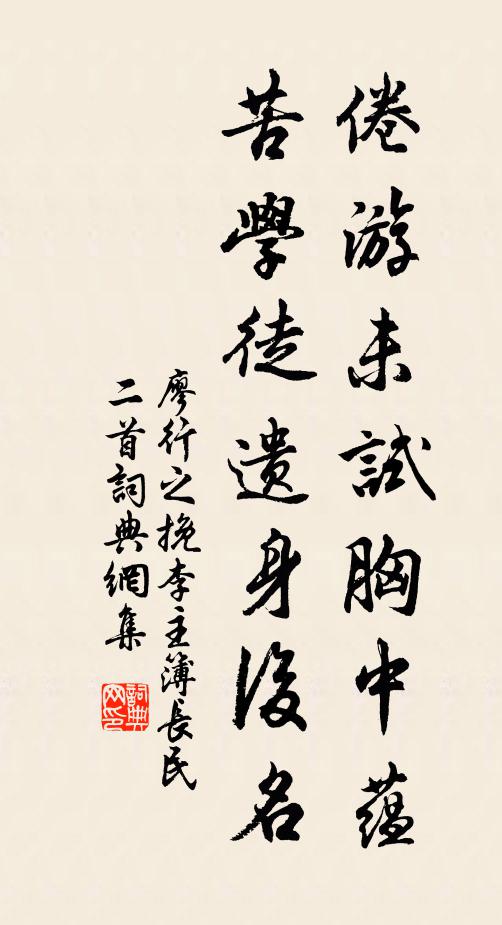 倦游未試胸中蘊
苦學徒遺身後名
廖行之挽李主簿長民
二首詞典網集
詞典網印